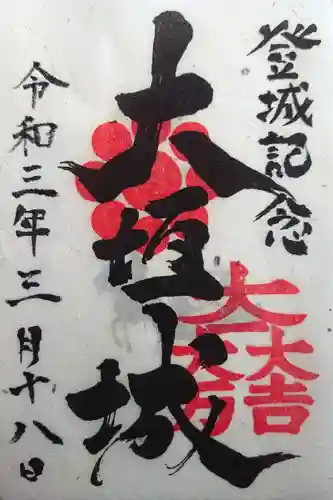 登城記念
大垣城
大一大万大吉
令和三年三月十八日